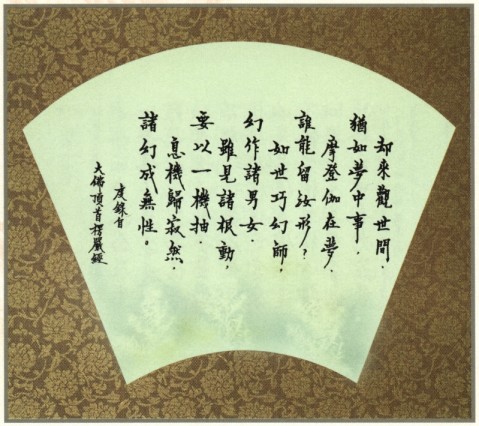 却來觀世間．
猶如夢中事．
摩登伽在夢．
誰能留汝形？
如世巧幻師，
幻作諸男女．
雖見諸根動，
要以一機抽．
息機歸寂然．
諸幻成無性。
度錄自
大佛頂首楞嚴經